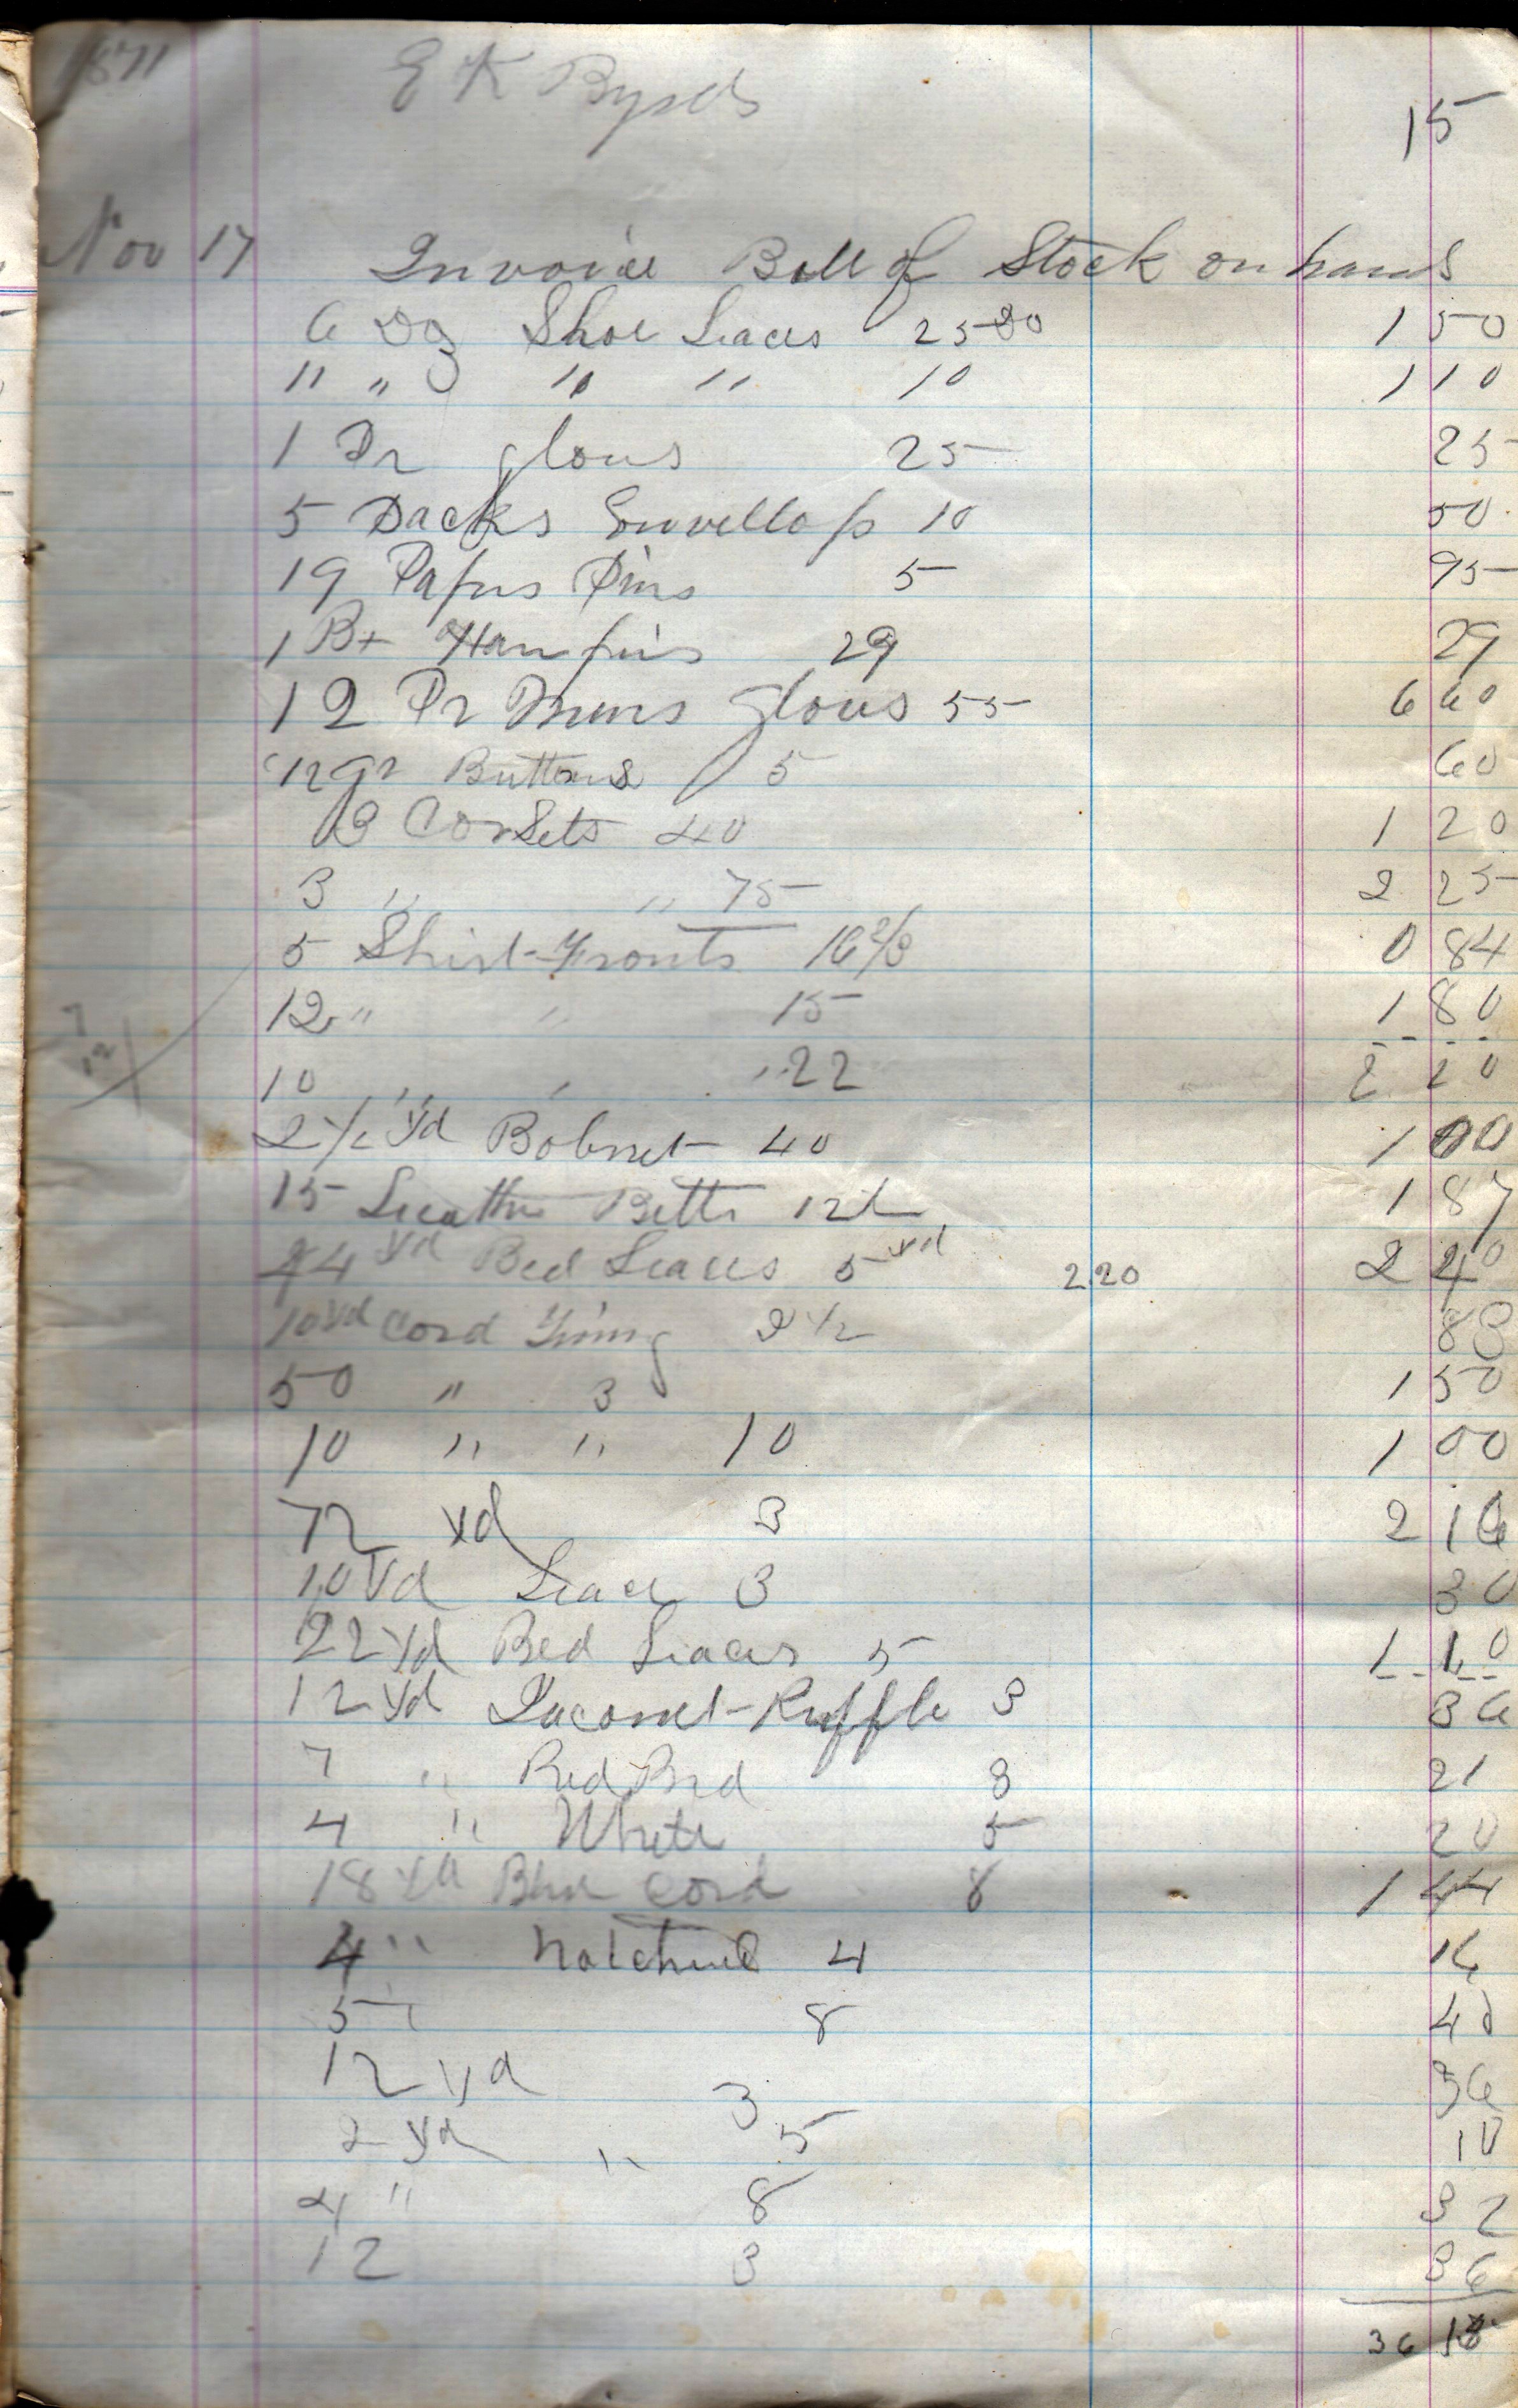 1871 E K Byrds
15
Nov 17 Invoice Bill of Stock on hand
6 Dz Shoe Laces 25 1 50
" " " " 10 1 10
1 Pr gloves 25 25
5 Packs Envellops 10 50
19 Papers Pins 5 95
1 Bx Hairpins 29 29
12 Pr Mens gloves 55 6 60
12 gr Buttons 5 60
3 Corsets 40 1 20
3 " " 75 2 25
5 Shirt Fronts 16 2/3 0 84
12 " " 15 1 80
10 " " " 22 2 20
2 1/2 Yd Bobnet 40 1 00
15 Leather Belts 12 1/2 1 87
44 Yd Bed Laces 5 Yd 2 20 2 20
10 Yd Cord Trimg 2 1/2
50 " 3 1 50
10 " " 10 1 00
72 Yd 3 2 16
10 Yd Lace 3 30
22 Yd Bed Laces 5 1 10
12 Yd Jaconet Ruffle 3 36
7 " Red Brd 3 21
4 " White 5 20
18 Yd Blue Cord 8 1 44
4 " 4 16
5 " 8 40
12 Yd 3 36
2 Yd " 5 10
4 " 8 32
12 3 36
36 18